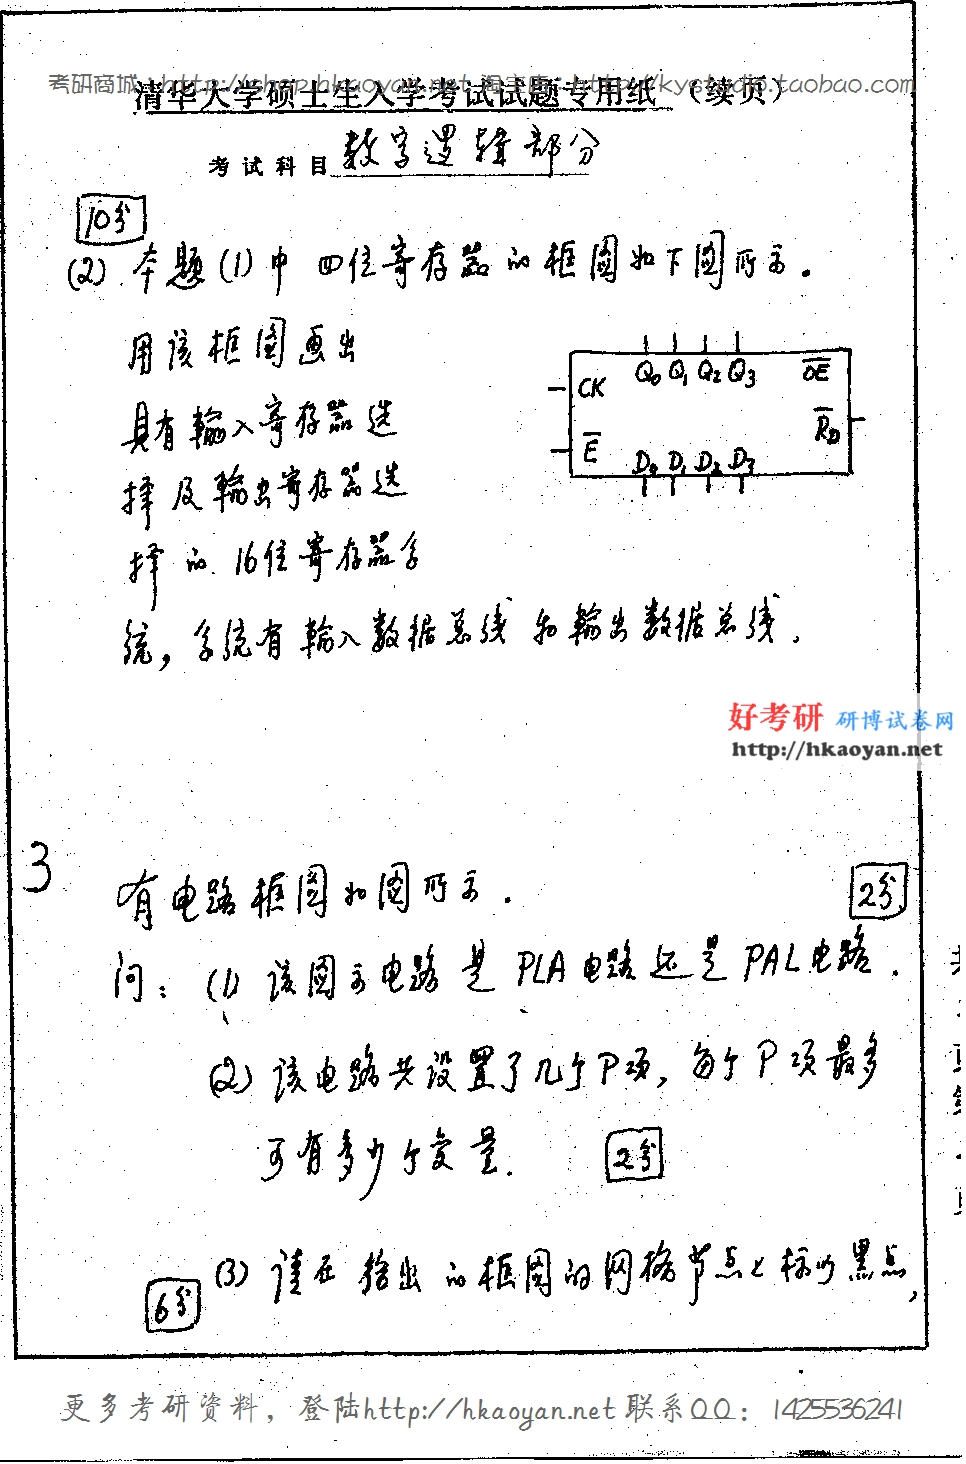 考研商城：http://shop.hkaoyan.net 淘宝店：http://kystudio.taobao.com
清华大学硕士生入学考试试题专用纸 （续页）
考试科目 数字逻辑部分
10分
(2) 本题(1)中四位寄存器的框图如下图所示.
用该框图画出
具有输入寄存器选
择及输出寄存器选
择的16位寄存器系
统, 系统有输入数据总线和输出数据总线.
CK Q0 Q1 Q2 Q3 OE
E D0 D1 D2 D3 RD
好考研 研博试卷网
http://hkaoyan.net
3
有电路框图如图所示. 2分
问: (1) 该图示电路是PLA电路还是PAL电路.
(2) 该电路共设置了几个P项, 每个P项最多
可有多少个变量. 2分
(3) 请在给出的框图的网格节点上标以黑点,
6分
更多考研资料，登陆http://hkaoyan.net 联系QQ：1425536241